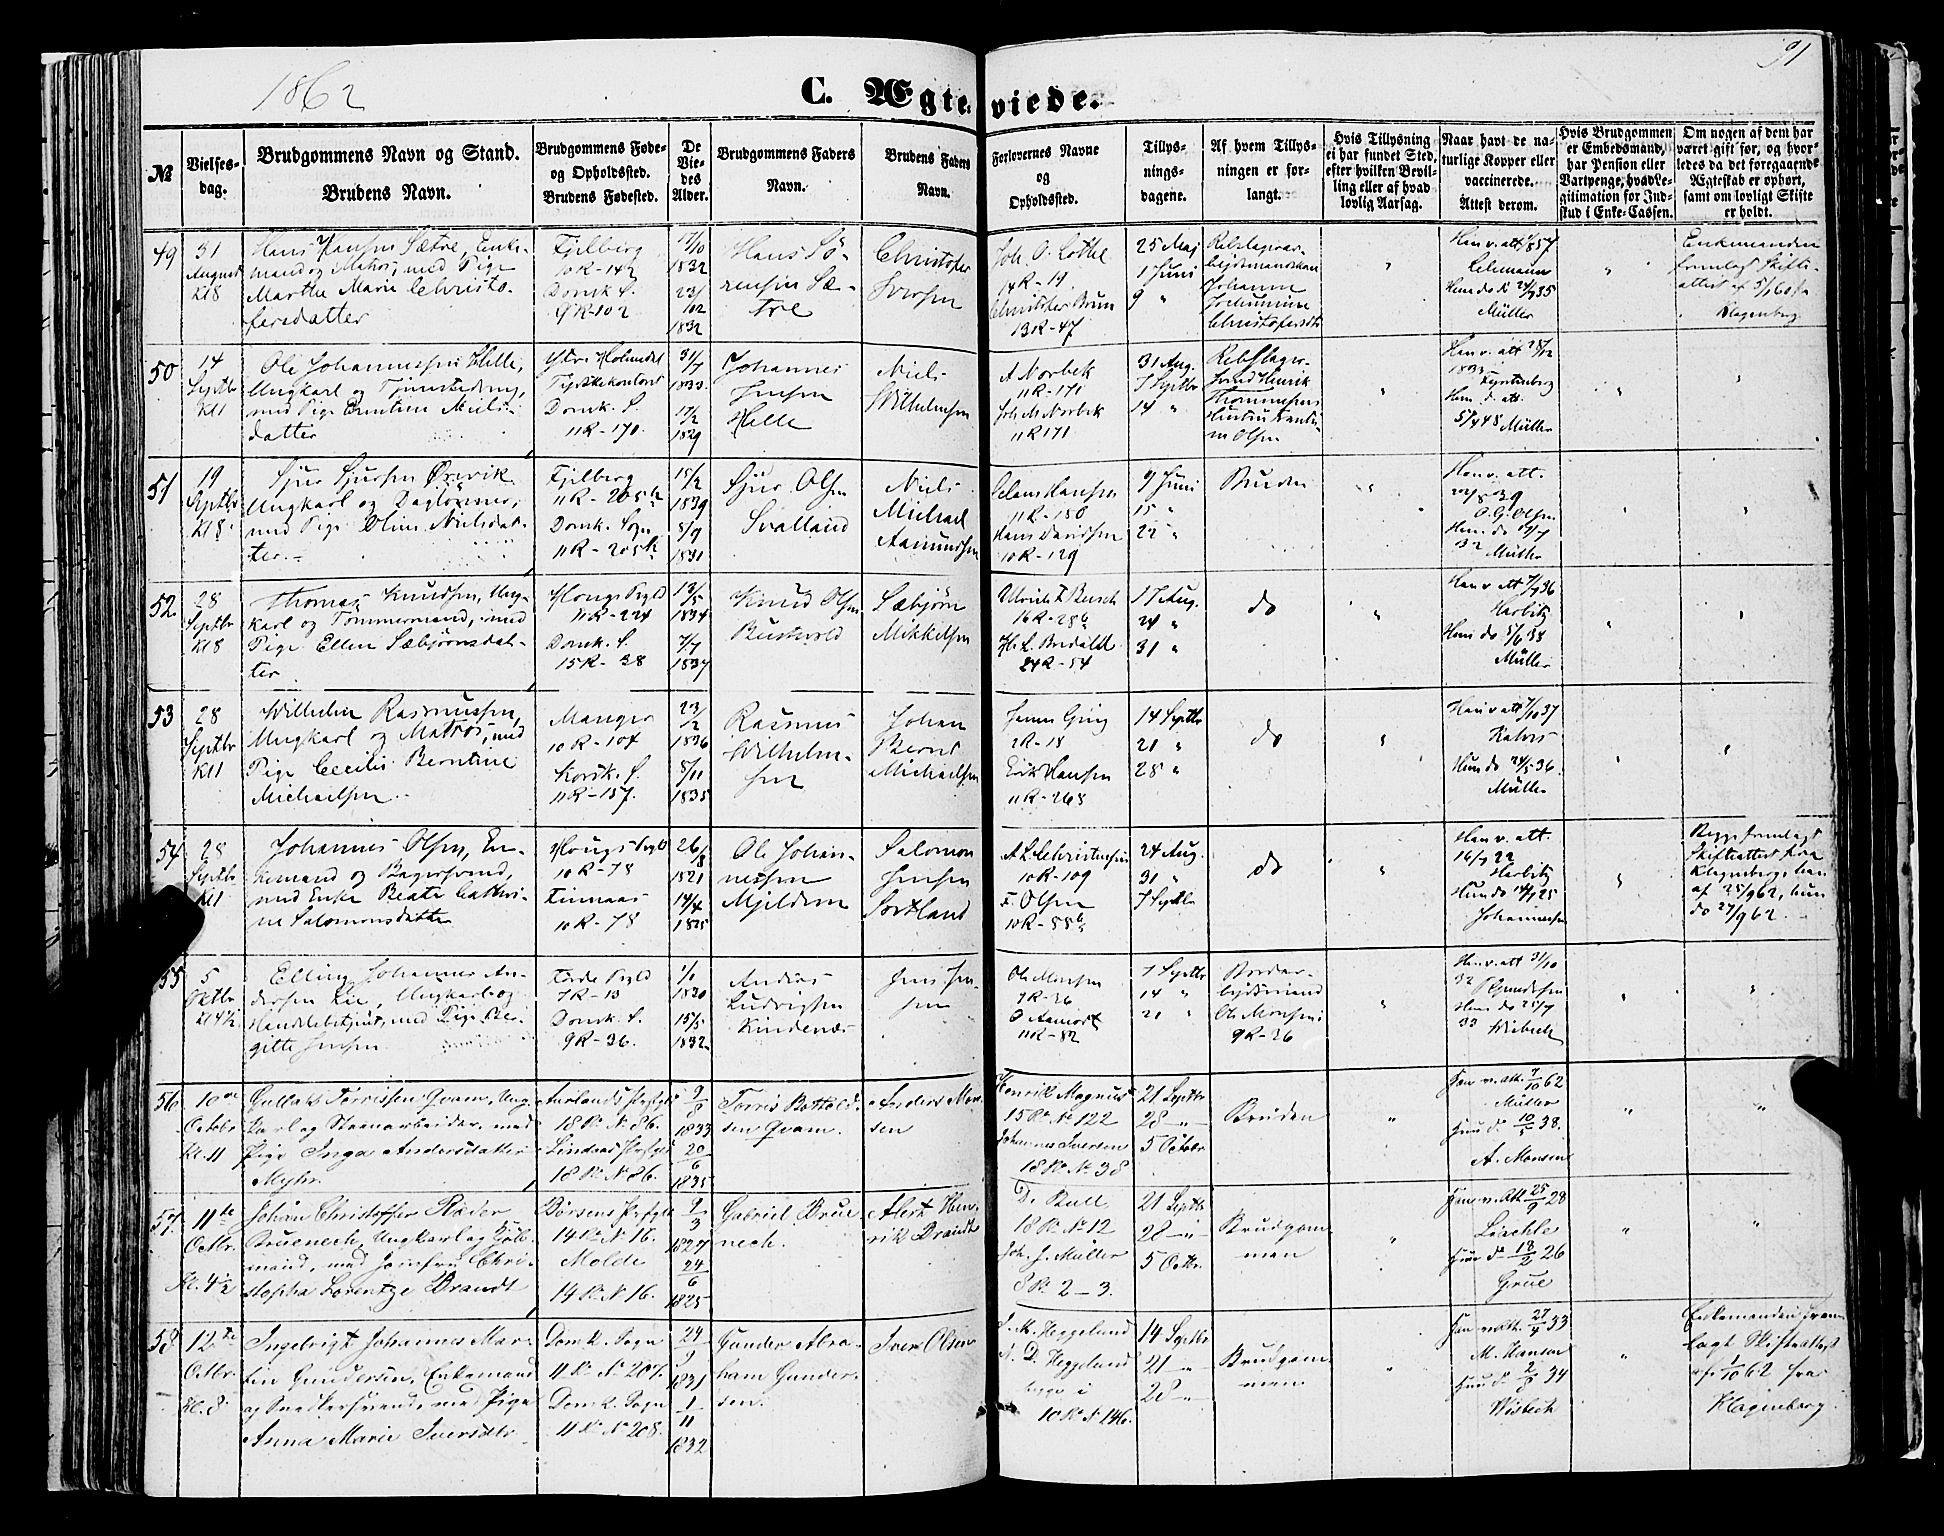 1862
C. Ægteviede.
91
№
Vielses-
dag.
Brudgommens Navn og Stand.
Brudens Navn.
Brudgommens Føde-
og Opholdssted.
Brudens Fødested.
De
Vie-
des
Alder.
Brudgommens Faders
Navn.
Brudens Faders
Navn.
Forlovernes Navne
og
Opholdssted.
Tillys-
nings-
dagene.
Af hvem Tillys-
ningen er for-
langt.
Hvis Tillysning
ei har fundet Sted,
efter hvilken Bevil-
ling eller af hvad
lovlig Aarsag.
Naar havt de na-
turlige Kopper eller
vaccinerede.
Attest derom.
Hvis Brudgommen
er Embedsmand,
har Pension eller
Vartpenge, hvad Le-
gitimation for Ind-
skud i Enke-Cassen.
Om nogen af dem har
været gift før, og hvor-
ledes da det foregaaende
Ægteskab er ophørt,
samt om lovligt Skifte
er holdt.
49
31
August
Kl 8
Hans Hansen Sætre, Enke-
mand og Matros, med Pige
Marthe Marie Christo-
fersdatter
Fjelberg
10 R-142
Domk. S.
9 R-102
17/10
1832
23/
102
1832
Hans Sø-
rensen Sæ-
tre
Christofer
Iversen
Joh. O. Lothe
14 R-19
Christofer Brun
13 R-47
25 Maj
1 Juni
9 "
Johanne
Christofersdt
Han v. att 1/8 57
Lehmann
Hun do 24/9 35
Müller
Enkemanden
fremlagt Skifte-
attest af 5/1 60 fra
Klagenberg
50
14
Septbr
Kl 1
Ole Johannessen Helle,
Ungkarl og Tjenestedreng,
med Pige Berntine Niels-
datter
Tydskekontoret
Domk. S.
11 R-170
31/7
1833
17/2
1829
Johannes
Jensen
Helle
Niels
Wilhelmsen
A Norbek
11 R-171
Joh. M. Norbek
11 R 171
31 Aug.
7 Septbr
14 "
Rebslager-
svend Henrik
Thommesens
Hustru
Olsen
Han v. att 28/12
1833
Hun d. att.
5/4 48 Müller
51
19
Septbr
Kl 8
Sjur Sjursen Ørevik
Ungkarl og Daglønner,
med Pige Oline Nielsdat-
ter.
Fjelberg
11 R-205 b
Domk. Sogn
11 R-205 b
15/2
1839
8/9
1831
Sjur Olsen
Svalland
Niels
Michael
Aamundsen
Claus Hansen
11 R-180
Hans Davidsen
10 R-129
9 Juni
15 "
22 "
Bruden
Han v. att.
22/8 39
O. G. Olsen
Hun do 19/7
32 Müller
52
28
Septbr
Kl 8
Thomas Knudsen, Ung-
karl og Tømmermand, med
Pige Ellen Sæbjørnsdat-
ter
Hougs Pgld
11 R-224
Domk. S.
15 R-38
13/5
1834
7/7
1837
Knud Olsen
Sæbjørn
Mikkelsen
Ullrich F Busch
16 R-28 b
24 R-54
17 Aug.
24 "
31 "
do
Han v. att 7/9 36
Harbitz
Hun do 5/6 38
Müller
53
28
Septbr
Kl 1
Wilhelm Rasmussen,
Ungkarl og Matros, med
Pige Cecilie Berntine
Michaelsen
Manger
10 R-104
Korsk. S.
11 R-157.
23/2
1836
8/11
1835
Rasmus
Wilhelm-
sen
Johan
Bernt
Michaelsen
2 R-18
Erik Hansen
11 R-268
14 Septbr
21 "
28 "
do
Han v att 7/10 37
Hun do 24/5 36.
Müller
54
28
Septbr
Kl 1
Johannes Olsen, En-
kemand og Bagersvend,
med Enke Beate Cathri-
ne Salomonsdatter
Hougs Pgld
10 R-78
Finnaas
10 R-78
26/8
1821
14/4
1825
Ole Johan-
nessen
Mjeldem
Salomon
Jensen
Sortland
A. L. Christensen
10 R-109
F. Olsen
10 R-58 b
24 Aug.
31 "
7 Septbr
do
Han v. att.
16/9 22
Harbitz
Hun do 14/9 25
Johannesen
Begge fremlagt
Skifteattest fra
Klagenberg, han
af 25/9 62, hun
do 27/9 62.
55
5
Oktbr
Kl 4½
Elling Johannes An-
dersen Lie, Ungkarl og
Handelsbetjent, med Pige Bir-
gitte Jensen.
Førde Pgld
7 R-13
Domk. S.
9 R-36.
1/1
1830
15/5
1832
Andreas
Ludvigsen
Kindenæs
Jens Jen-
sen
Ole Monsen
9 R-26
O Aamodt
11 R-82
7 Septbr
14 "
21 "
Bordar-
beidsmand
Ole Monsen
9 R-26
Han v. att 31/10
32
Hun do 25/7
33 Wiesbech
56
10de
Octobr
Kl. 11
Gullak Torrissen Qvam, Ung-
karl og Steenarbeider, med
Pige Inga Andersdatter
Myhr.
Aurlands Præstgj
18 R. N. 86.
Lindaas Præstgj
18 R. N. 86.
9/8
1833
20/6
1835
Torris Bothold-
sen Qvam.
Anders Mon-
sen
Henrik Magnus
15 R. No 122
Johannes Iversen
18 R. N. 38
21 Septbr
28 - " -
5 Octobr
Bruden
Han v. att. 9/10 62
Müller
Hun do 10/5 38.
A. Monsen
57.
11te
Octbr.
Kl. 4½
Johan Christoffer Ræder
Bruenech, Ungkarl og Guld-
mand, med Jomfru Chri-
stopha Lorentze Brandt
Børsens Præstgj
14 R. N. 16.
Molde
14 R. N. 16.
9/3
1827
24/6
1825
Gabriel Brue
nech.
Alert Hen-
rik Brandt
D. Bull
18 R. No 12
Joh. J. Müller
8 R. 2-3.
21 Septbr
28 - " -
5 Octbr.
Brudgom
men
Han v. Att. 25/9 28
Hun do 18/2 26
Grue
58
12te
Octbr.
Kl. 8
Ingebrigt Johannes Mar-
tin Gundersen, Enkemand
og Snedkersvend, med Pige
Anna Marie Iversdtr.
Domk. Sogn
11 R. No 207.
Domk. Sogn
11 R. No 208.
24/9
1831
1/11
1832
Gunder Abra-
ham Gunder-
sen.
Iver Olsen
J. M. Heggelund
A. D. Heggelund
begge i
10 R. N. 146.
14 Septbr
21 - " -
28 - " -
Brudgom
men
Han v. Att. 27/4 33
M. Hansen
Hun do 2/8 34
Wisbech
Enkemanden frem-
lagt Skifteattest
af 1/10 62 fra
Klagenberg.